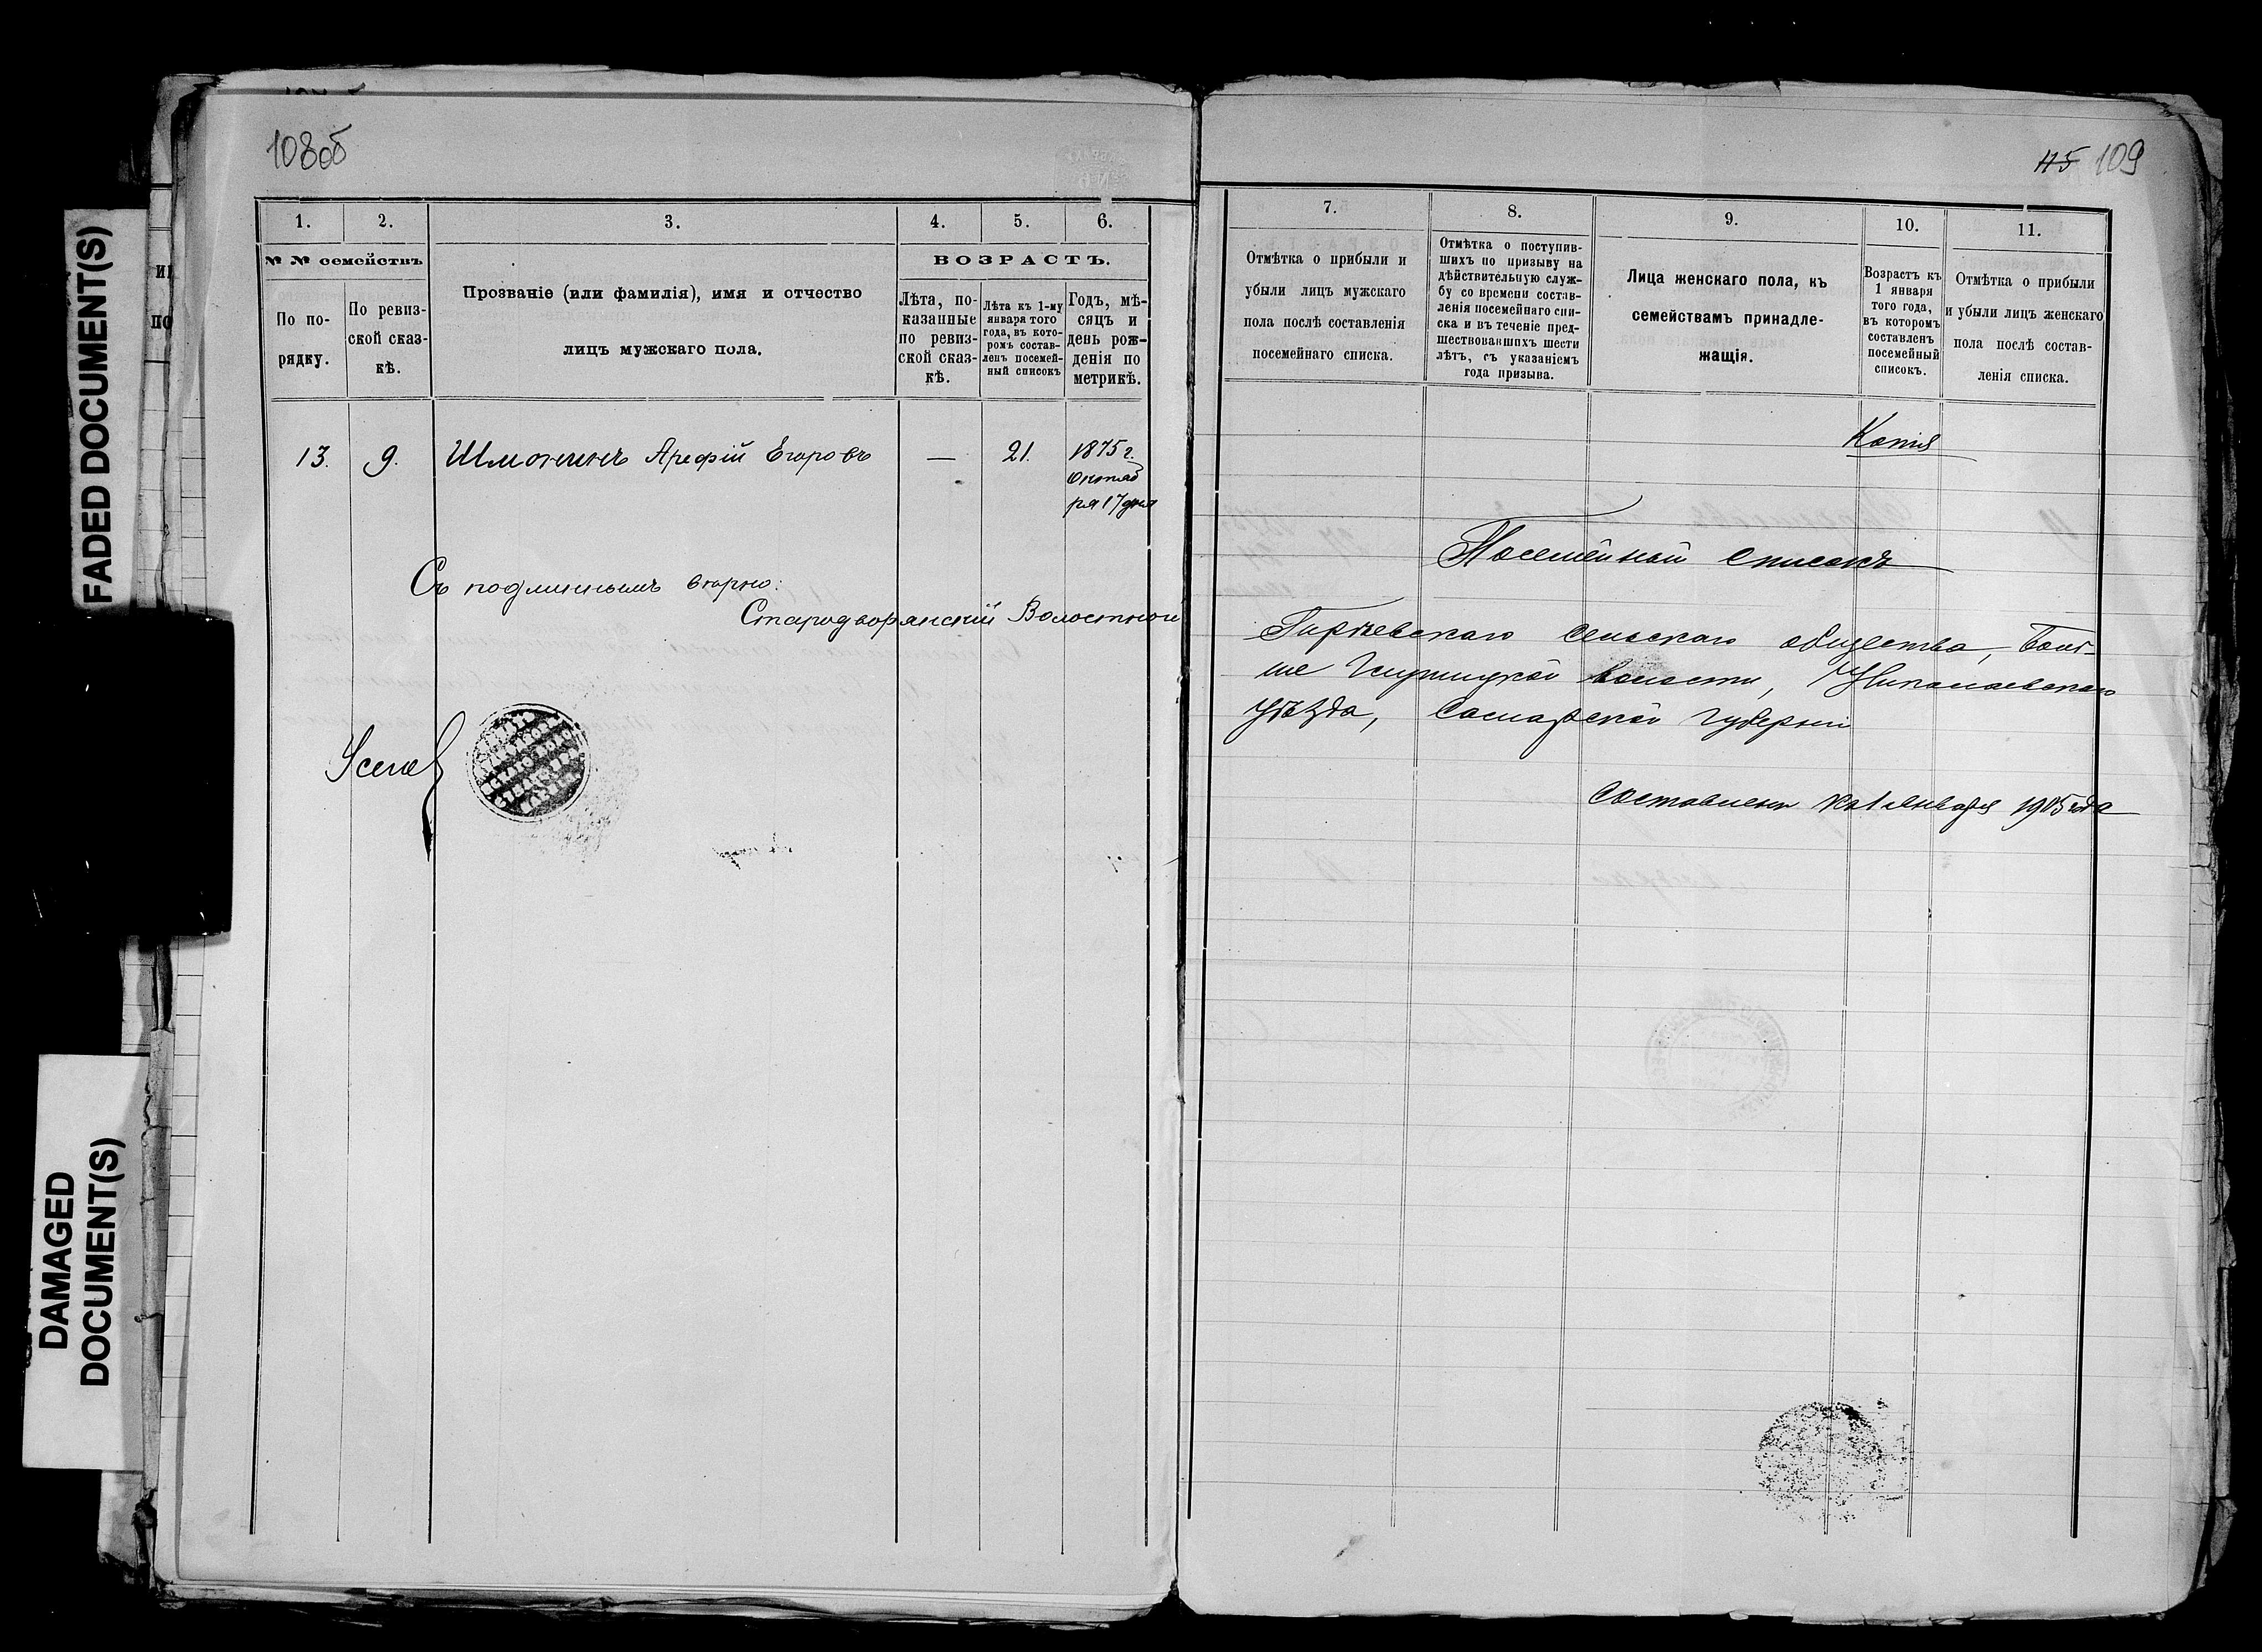 FADED DOCUMENT(S)
DAMAGED
DOCUMENT(S)
108об
1. 2. 3. 4. 5. 6.
№ № семействъ
По по-
рядку.
По ревиз-
ской сказ-
кѣ.
Прозваніе (или фамилія), имя и отчество
лицъ мужскаго пола.
ВОЗРАСТЪ.
Лѣта, по-
казанные
по ревиз-
ской сказ-
кѣ.
Лѣта къ 1-му
января того
года, въ кото-
ромъ состав-
ленъ посемей-
ный списокъ
Годъ, мѣ-
сяцъ и
день рож-
денія по
метрикѣ.
13. 9. Шмонинъ Арефій Егоровъ — 21. 1875 г.
Октяб
ря 17 дня
Съ подлиннымъ вѣрно:
Стародворянскій Волостной
Усен
115 109
7. 8. 9. 10. 11.
Отмѣтка о прибыли и
убыли лицъ мужскаго
пола послѣ составленія
посемейнаго списка.
Отмѣтка о поступив-
шихъ по призыву на
дѣйствительную служ-
бу со времени состав-
ленія посемейнаго спи-
ска и въ теченіе пред-
шествовавшихъ шести
лѣтъ, съ указаніемъ
года призыва.
Лица женскаго пола, къ
семействамъ принадле-
жащія.
Возрастъ къ
1 января
того года,
въ которомъ
составленъ
посемейный
списокъ.
Отмѣтка о прибыли
и убыли лицъ женскаго
пола послѣ состав-
ленія списка.
Копія
Посемейной списокъ
сельскаго общества, Боль-
ше волости, Николаевскаго
уѣзда, Самарской губерніи
составленъ къ 1 января 1905 года